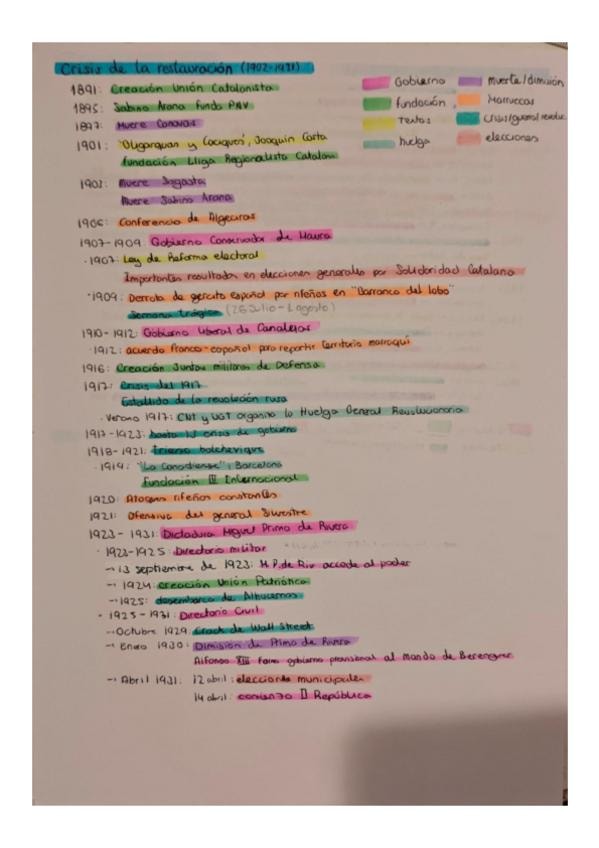 Crisis de la restauración (1902-1931)
Gobierno
muerte/dimisión
fundación
Marruecos
Textos
Crisis/guerra/revoluc.
huelga
elecciones
1891: Creación Unión Catalanista
1895: Sabino Arana funda PNV
1897: Muere Canovas
1901: "Oligarquias y Caciques", Joaquín Costa
fundación Lliga Regionalista Catalana
1903: Muere Sagasta
Muere Sabino Arana
1906: Conferencia de Algeciras
1907-1909: Gobierno Conservador de Maura
·1907: Ley de Reforma electoral
Importantes resultados en elecciones generales por Solidaridad Catalana
·1909: Derrota de ejercito español por rifeños en "Barranco del lobo"
Semana trágica (26 Julio - 1 agosto)
1910-1912: Gobierno liberal de Canalejas
·1912: acuerdo franco-español para repartir territorio marroquí
1916: Creación Juntas militares de Defensa
1917: Crisis del 1917
Estallido de la revolución rusa
· Verano 1917: CNT y UGT organiza la Huelga General Revolucionaria
1917-1923: hasta 13 crisis de gobierno
1918-1921: trienio bolchevique
· 1919: "La Canadiense", Barcelona
fundación III Internacional
1920: Ataques rifeños constantes
1921: Ofensiva del general Silvestre
1923-1931: Dictadura Miguel Primo de Rivera
· 1923-1925: Directorio militar
→ 13 septiembre de 1923: M.P. de Riv accede al poder
→ 1924: creación Unión Patriótica
→ 1925: desembarco de Alhucemas
· 1925-1931: Directorio Civil
→ Octubre 1929: Crack de Wall Street
→ Enero 1930: Dimisión de Primo de Rivera
Alfonso XIII forma gobierno provisional al mando de Berenguer
→ Abril 1931: 12 abril: elecciones municipales
14 abril: comienzo II República